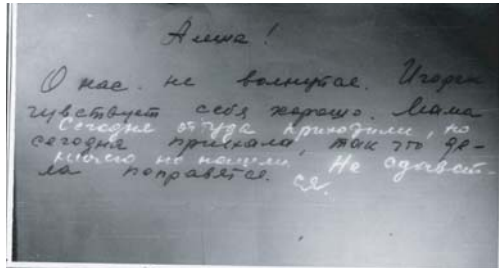 Алеша!
О нас не волнуйтесь. Игорек
чувствует себя хорошо. Мама
Сегодня оттуда приходили, но
сегодня приехала, так что де-
ничего не нашли. Не сдавай-
ла поправятся.
ся.